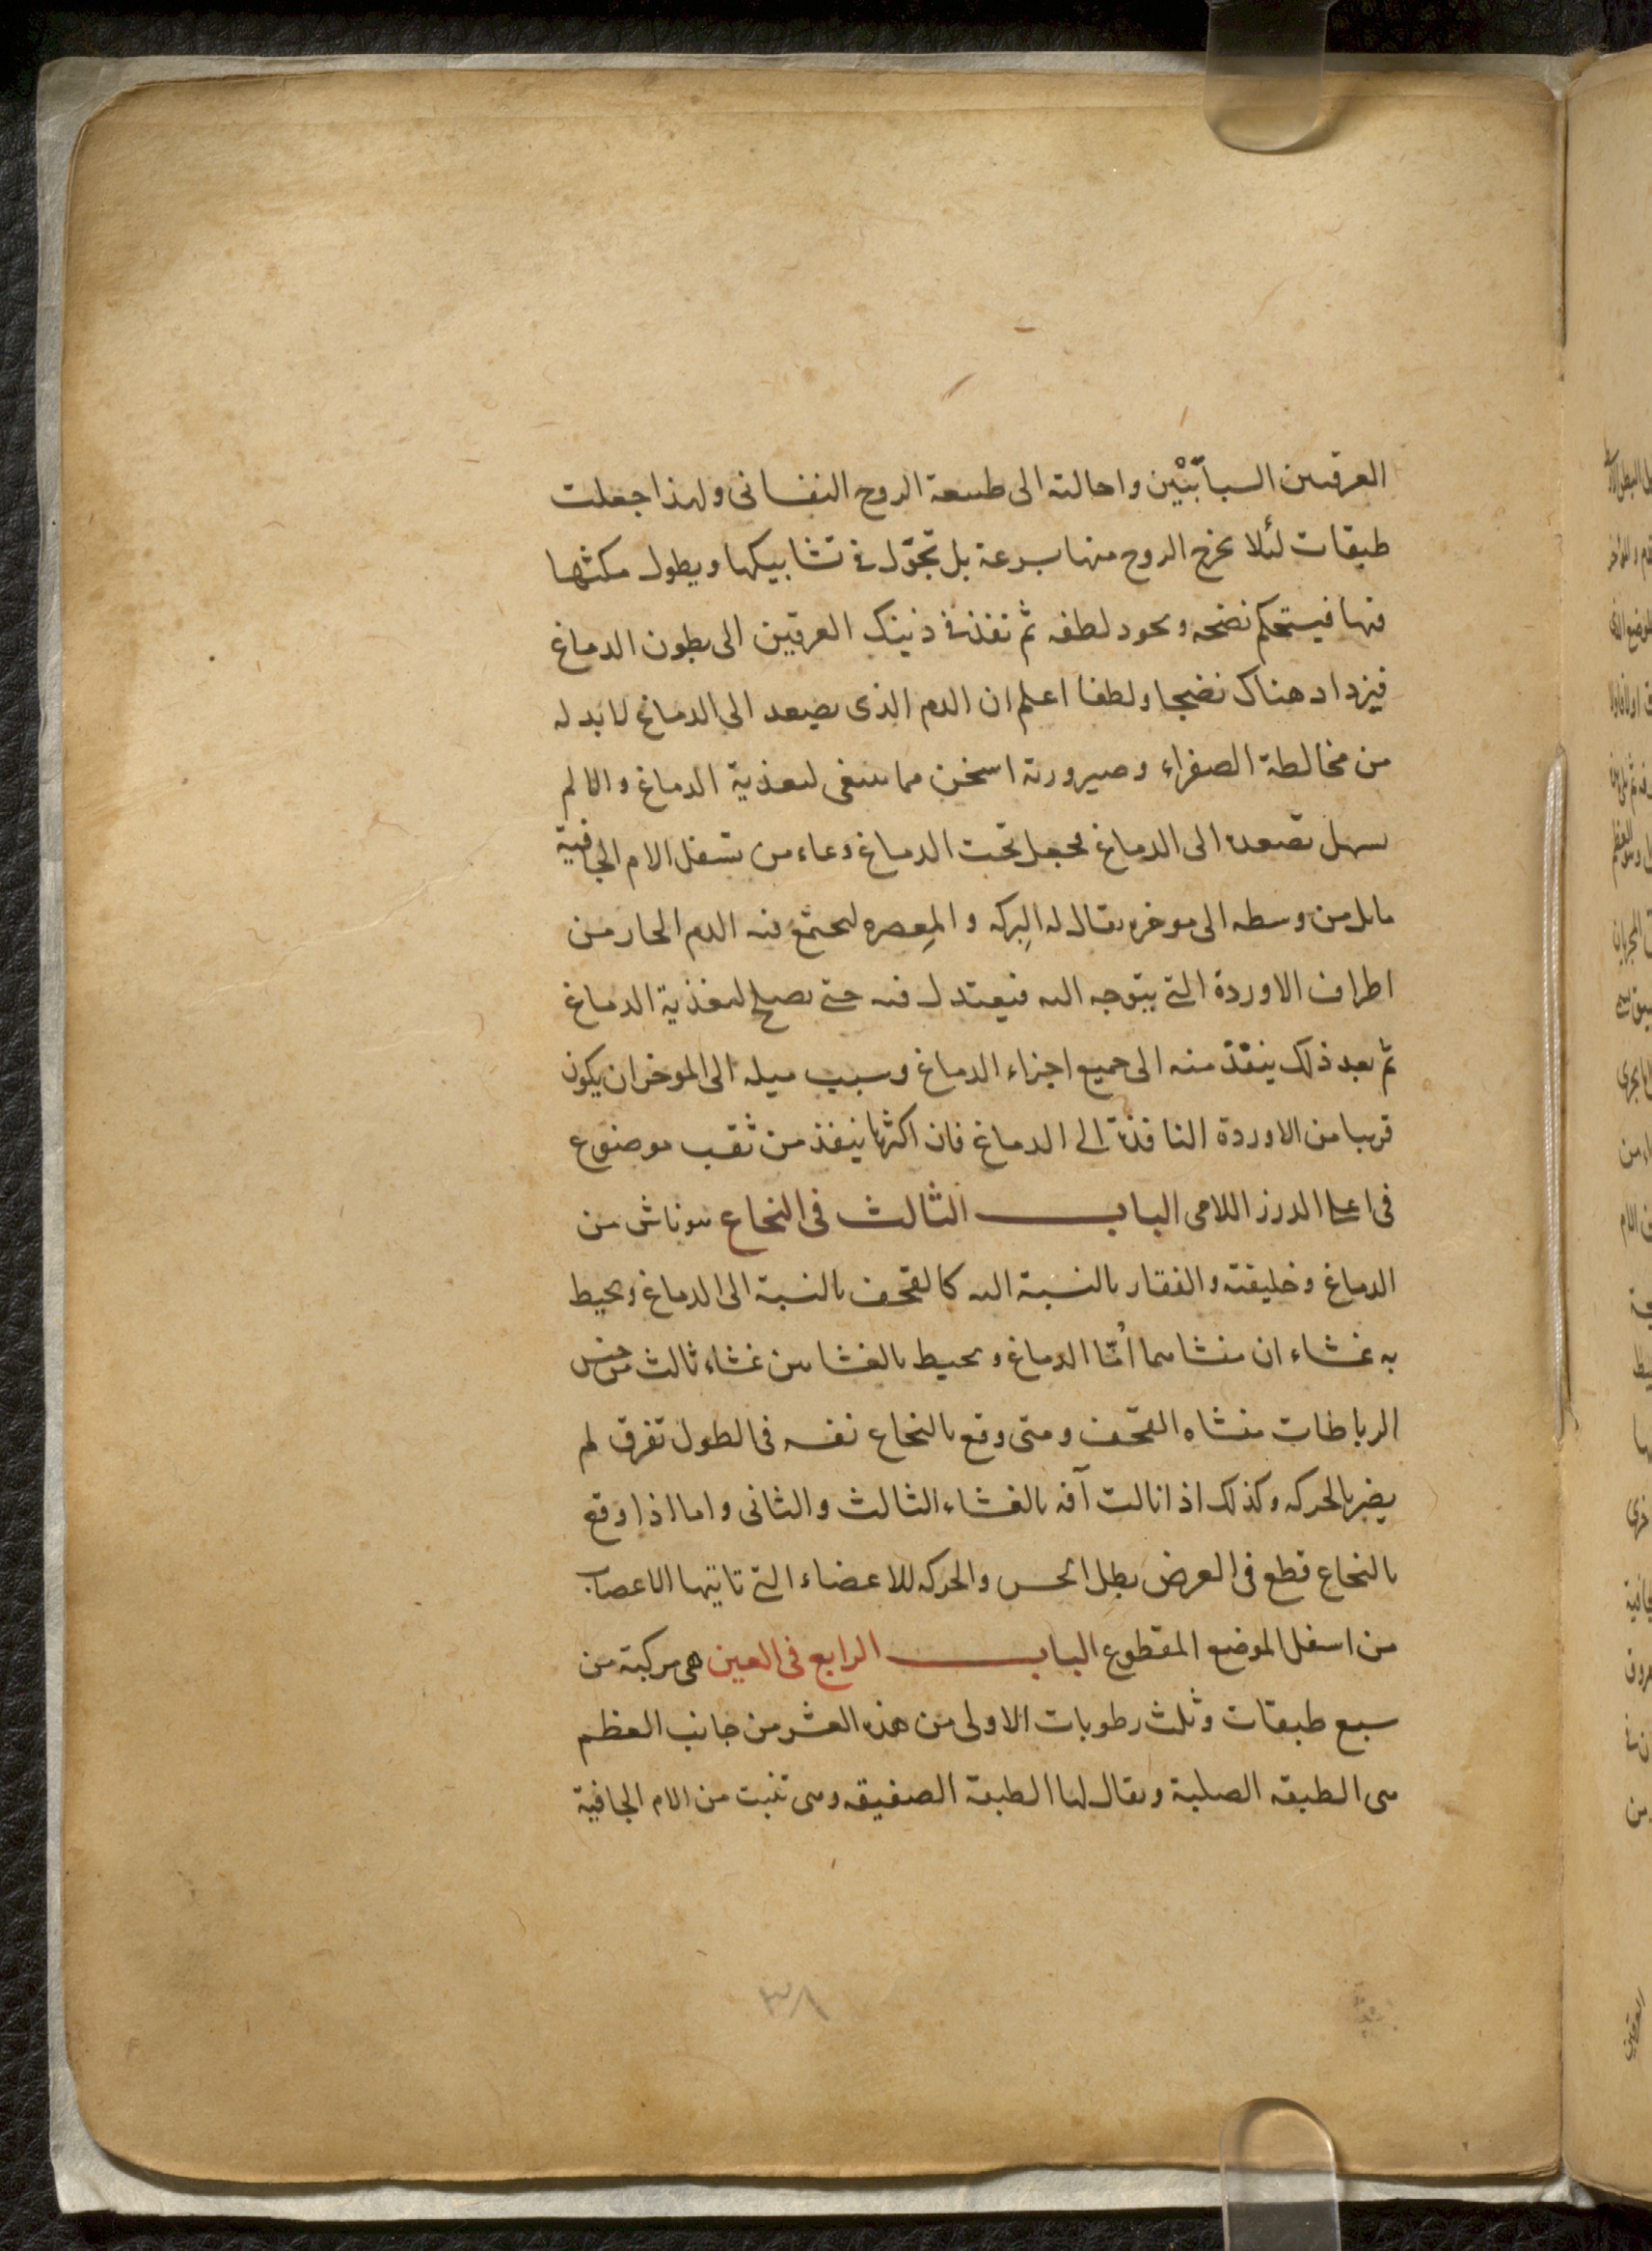 العرقين السباتيين واحالته الى طبيعة الروح النفسانى ولهذا جعلت
طبقات لئلا يخرج الروح منها بسرعة بل تجول فى تشابيكها ويطول مكثها
فيها فيستحكم نضجه ويجود لطفه ثم تنفذ فى ذينك العرقين الى بطون الدماغ
فيزداد هناك نضجا ولطفا اعلم ان الدم الذى يصعد الى الدماغ لا بد له
من مخالطة الصفراء وصيرورته اسخن مما ينبغى لتغذية الدماغ والا لم
يسهل تصعده الى الدماغ فجعل تحت الدماغ وعاء من تسفل الام الجافية
مايل من وسطه الى موخره يقال له البركه والمعصره ليجتمع فيه الدم الحار من
اطراف الاوردة التى يتوجه اليه فيعتدل فيه حتى يصلح لتغذية الدماغ
ثم بعد ذلك ينفذ منه الى جميع اجزاء الدماغ وسبب ميله الى الموخر ان يكون
قريبا من الاوردة النافذة الى الدماغ فان اكثرها ينفذ من ثقب موضوع
فى اعلى الدرز اللامى الباب الثالث فى النخاع هو ناش من
الدماغ وخليفته والفقار بالنسبة اليه كالقحف بالنسبة الى الدماغ ويحيط
به غشاء ان منشاهما امّا الدماغ ويحيط بالغشاءين غشاء ثالث من جنس
الرباطات منشاه القحف ومتى وقع بالنخاع نفسه فى الطول تفرق لم
يضر بالحركه وكذلك اذا نالت آفه بالغشاء الثالث والثانى واما اذا وقع
بالنخاع قطع فى العرض بطل الحس والحركه للاعضاء التى تاتيها الاعصاب
من اسفل الموضع المقطوع الباب الرابع فى العين هى مركبة من
سبع طبقات وثلث رطوبات الاولى من هذه العشر من جانب العظم
هى الطبقه الصلبة ويقال لها الطبقة الصفيقه وهى تنبت من الام الجافية
٣٨